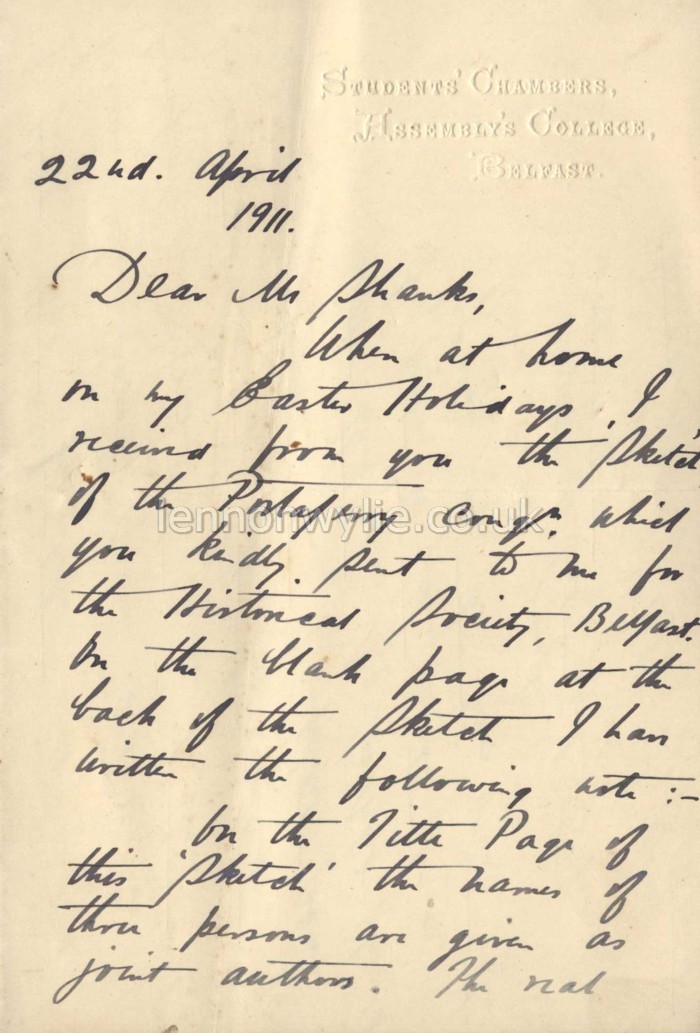 STUDENTS' CHAMBERS,
ASSEMBLY'S COLLEGE,
BELFAST.
22nd. April
1911.
Dear Mr Shanks,
When at home
on my Easter Holidays, I
received from you the 'Sketch
of the Portaferry Congn. which
lennonwylie.co.uk
you kindly sent to me for
the Historical Society, Belfast.
On the blank page at the
back of the Sketch I have
written the following note :-
On the Title Page of
this 'Sketch' the names of
three persons are given as
joint authors. The real